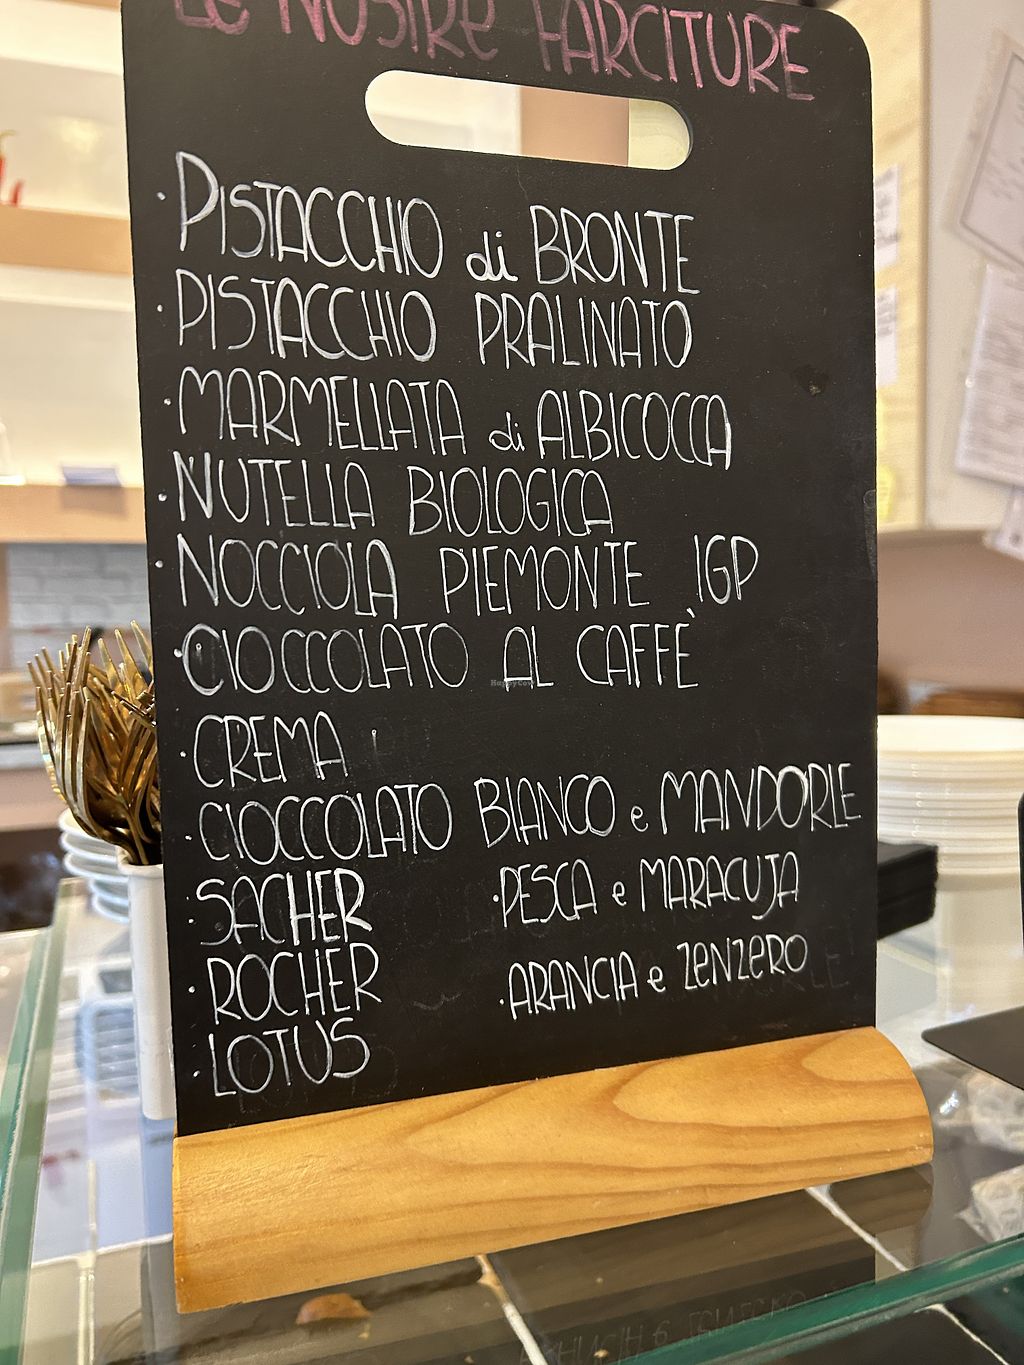 LE NOSTRE FARCITURE
· PISTACCHIO di BRONTE
· PISTACCHIO PRALINATO
· MARMELLATA di ALBICOCCA
· NUTELLA BIOLOGICA
· NOCCIOLA PIEMONTE IGP
· CIOCCOLATO AL CAFFÈ
· CREMA
· CIOCCOLATO BIANCO e MANDORLE
· SACHER
· PESCA e MARACUJA
· ROCHER
· ARANCIA e ZENZERO
· LOTUS
HappyCow